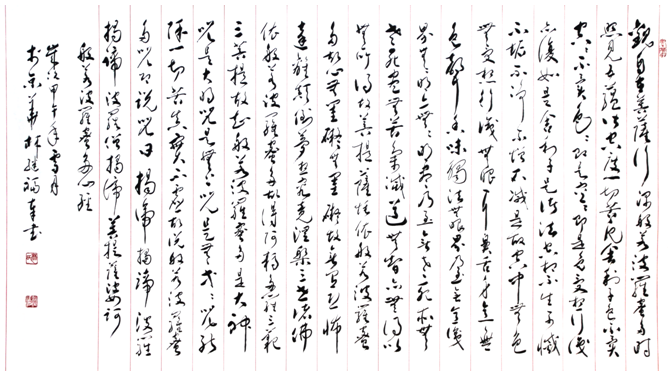 觀自在菩薩行深般若波羅蜜多時
照見五蘊皆空度一切苦厄舍利子色不異
空空不異色色即是空空即是色受想行識
亦復如是舍利子是諸法空相不生不滅
不垢不淨不增不減是故空中無色
無受想行識無眼耳鼻舌身意無
色聲香味觸法無眼界乃至無意識
界無無明亦無無明盡乃至無老死亦無
老死盡無苦集滅道無智亦無得以
無所得故菩提薩埵依般若波羅蜜
多故心無罣礙無罣礙故無有恐怖
遠離顛倒夢想究竟涅槃三世諸佛
依般若波羅蜜多故得阿耨多羅三藐
三菩提故知般若波羅蜜多是大神
咒是大明咒是無上咒是無等等咒能
除一切苦真實不虛故說般若波羅蜜
多咒即說咒曰 揭諦揭諦 波羅
揭諦 波羅僧揭諦 菩提薩婆訶
般若波羅蜜多心經
歲次甲午年雪月
於京華林書